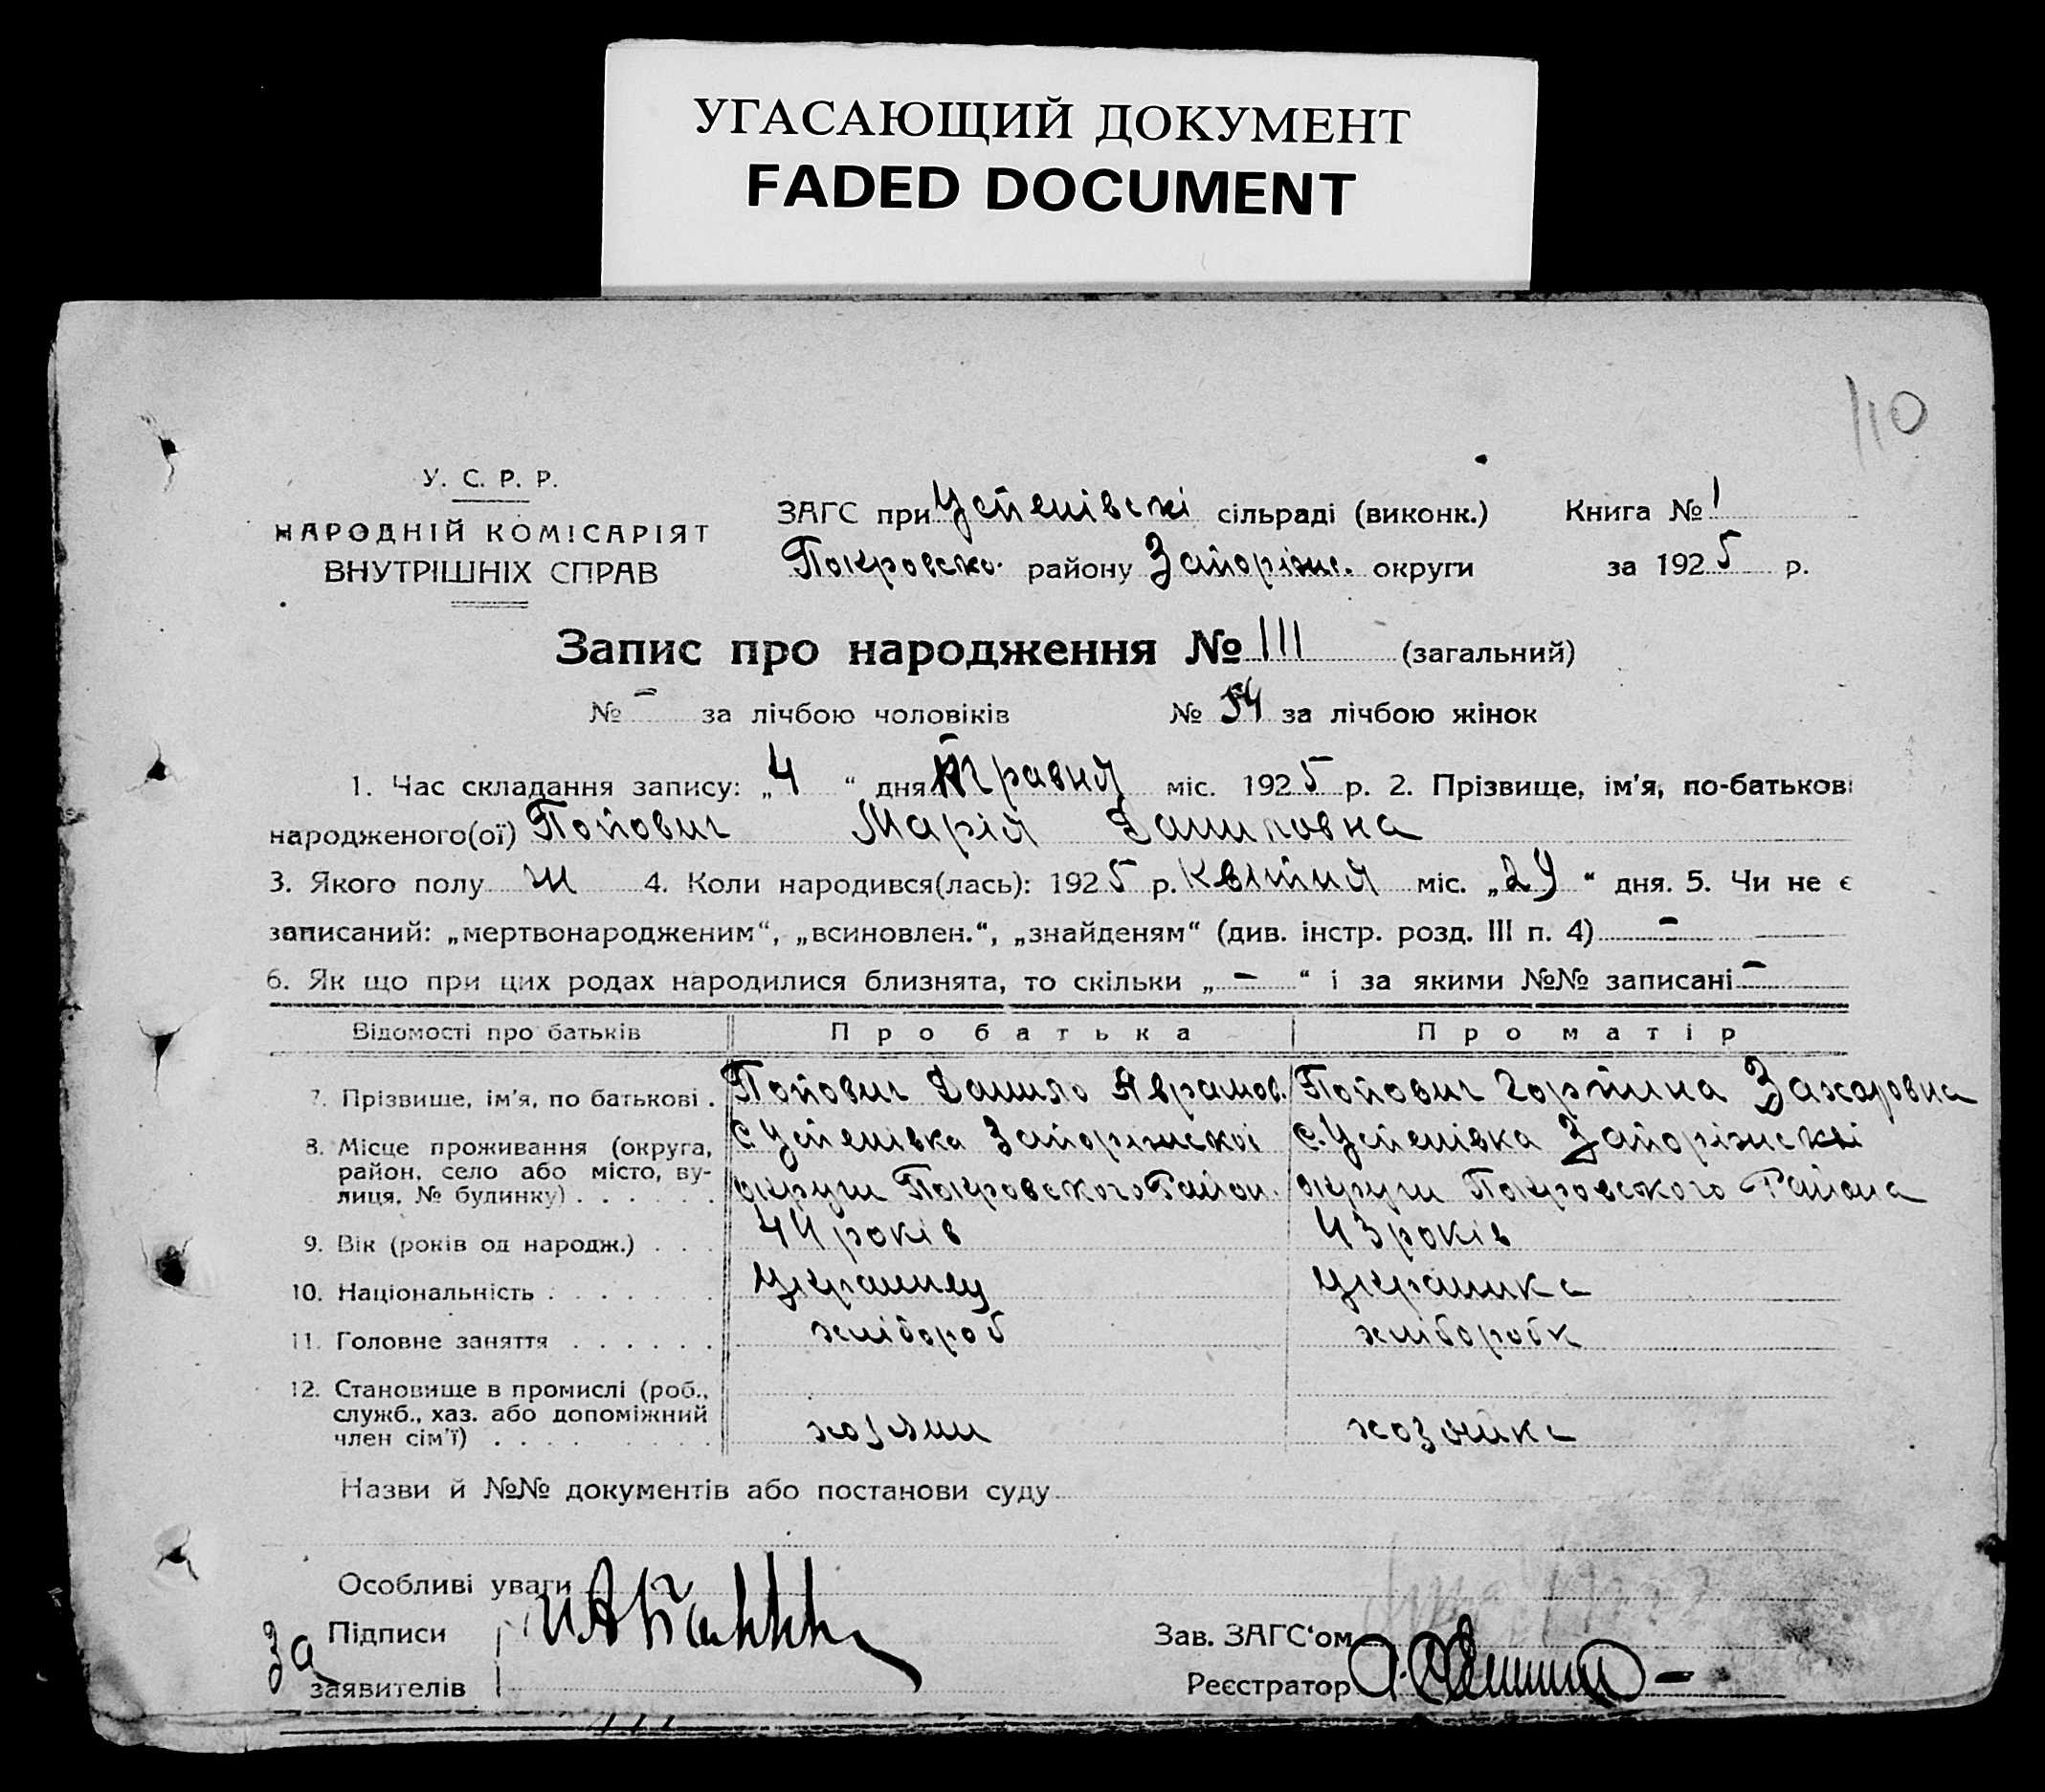 УГАСАЮЩИЙ ДОКУМЕНТ
FADED DOCUMENT
110
У. С. Р. Р.
НАРОДНІЙ КОМІСАРІЯТ
ВНУТРІШНІХ СПРАВ
ЗАГС при Успенівскі сільраді (виконк.) Книга № 1
Покровско. району Запоріжс. округи за 1925 р.
Запис про народження № 111 (загальний)
№ - за лічбою чоловіків № 54 за лічбою жінок
1. Час складання запису: „4“ дня травня міс. 1925 р. 2. Прізвище, ім'я, по-батькові
народженого(ої) Попович Марія Даниловна
3. Якого полу ж 4. Коли народився(лась): 1925 р. квітня міс. „29“ дня. 5. Чи не є
записаний: „мертвонародженим“, „всиновлен.“, „знайденям“ (див. інстр. розд. III п. 4) -
6. Як що при цих родах народилися близнята, то скільки „-“ і за якими №№ записані -
Відомості про батьків Про батька Про матір
7. Прізвище, ім'я, по батькові . Попович Данило Аврамов. Попович Горпина Захаровна
8. Місце проживання (округа, район, село або місто, вулиця, № будинку) . . . . . . с. Успенівка Запоріжскої округи Покровского Район. с. Успенівка Запоріжскої округи Покровского Района
9. Вік (років од народж.) . . . 44 років 43 років
10. Національність . . . . . . . украинец украинка
11. Головне заняття . . . . . . хлібороб хліборобк
12. Становище в промислі (роб., служб., хаз. або допоміжний член сім'ї) . . . . . . . . хозяин хозяйка
Назви й №№ документів або постанови суду
Особливі уваги
За Підписи
заявителів
Зав. ЗАГС'ом
Реєстратор